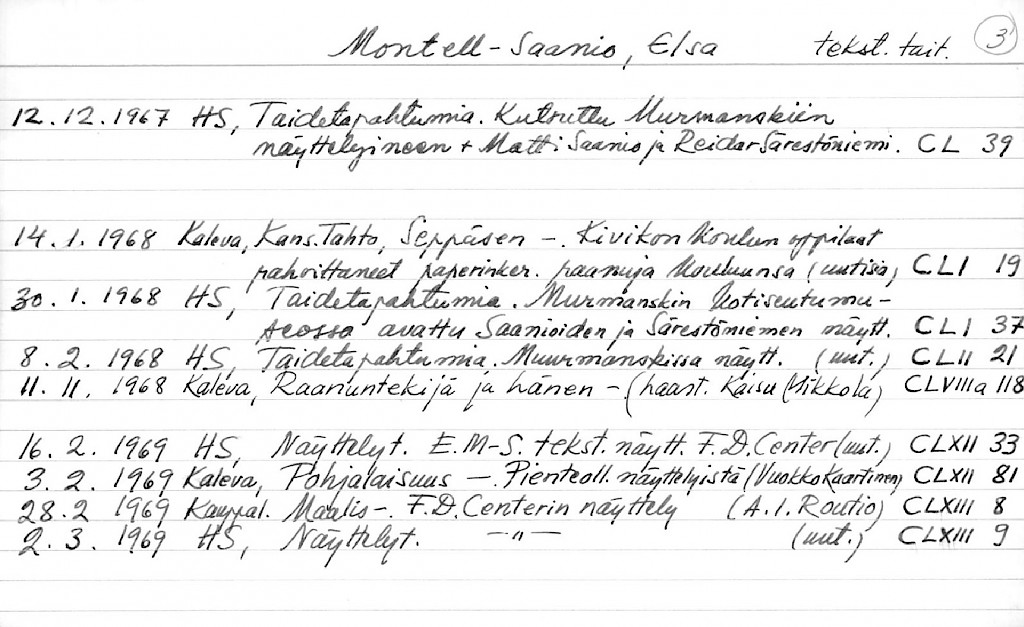 Montell-Saanio, Elsa tekst. tait. 3
12.12.1967 HS, Taidetapahtumia. Kutsuttu Murmanskiin
näyttelyineen + Matti Saanio ja Reidar Särestöniemi. CL 39
14.1.1968 Kaleva, Kans.Tahto, Seppäsen -. Kivikon koulun oppilaat
pahoittaneet paperinker. raanuja kouluunsa (uutisia) CLI 19
30.1.1968 HS, Taidetapahtumia. Murmanskin kotiseutumu-
seossa avattu Saanioiden ja Särestöniemen näytt. CLI 37
8.2.1968 HS, Taidetapahtumia. Muurmanskissa näytt. (uut.) CLII 21
11.11.1968 Kaleva, Raanuntekijä ja hänen - (haast. Kaisu Mikkola) CLVIIIa 118
16.2.1969 HS, Näyttelyt. E.M-S. tekst. näytt. F.D.Center (uut.) CLXII 33
3.2.1969 Kaleva, Pohjalaisuus -. Pienteoll. näyttelyistä (Vuokko Kaartinen) CLXII 81
28.2 1969 Kauppal. Maalis-. F.D.Centerin näyttely (A.I.Routio) CLXIII 8
2.3.1969 HS, Näyttelyt. -"- (uut.) CLXIII 9